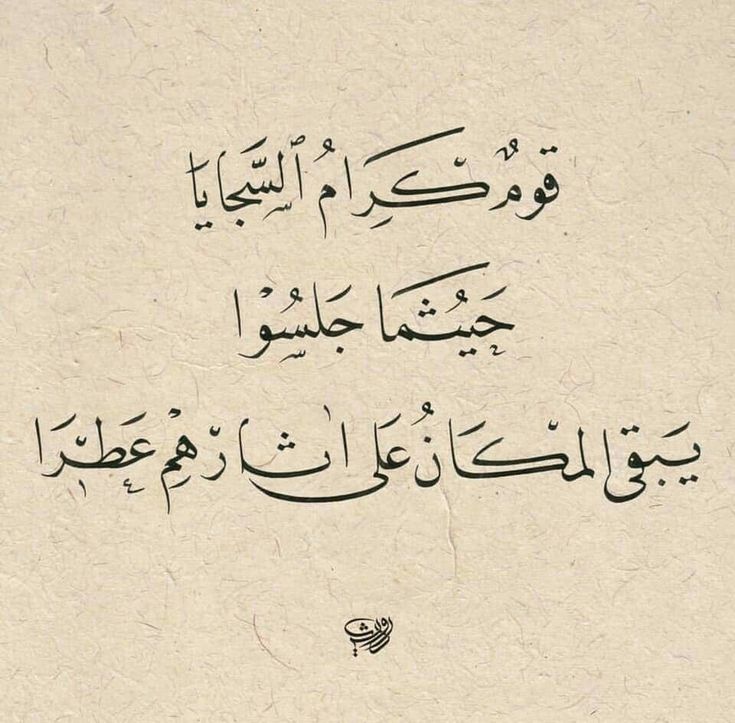 قومٌ كِرَامُ ٱلسَّجايا
حَيْثُمَا جَلَسُوْا
يَبقى المكَانُ عَلى اٰثارِهِمْ عَطِرَا